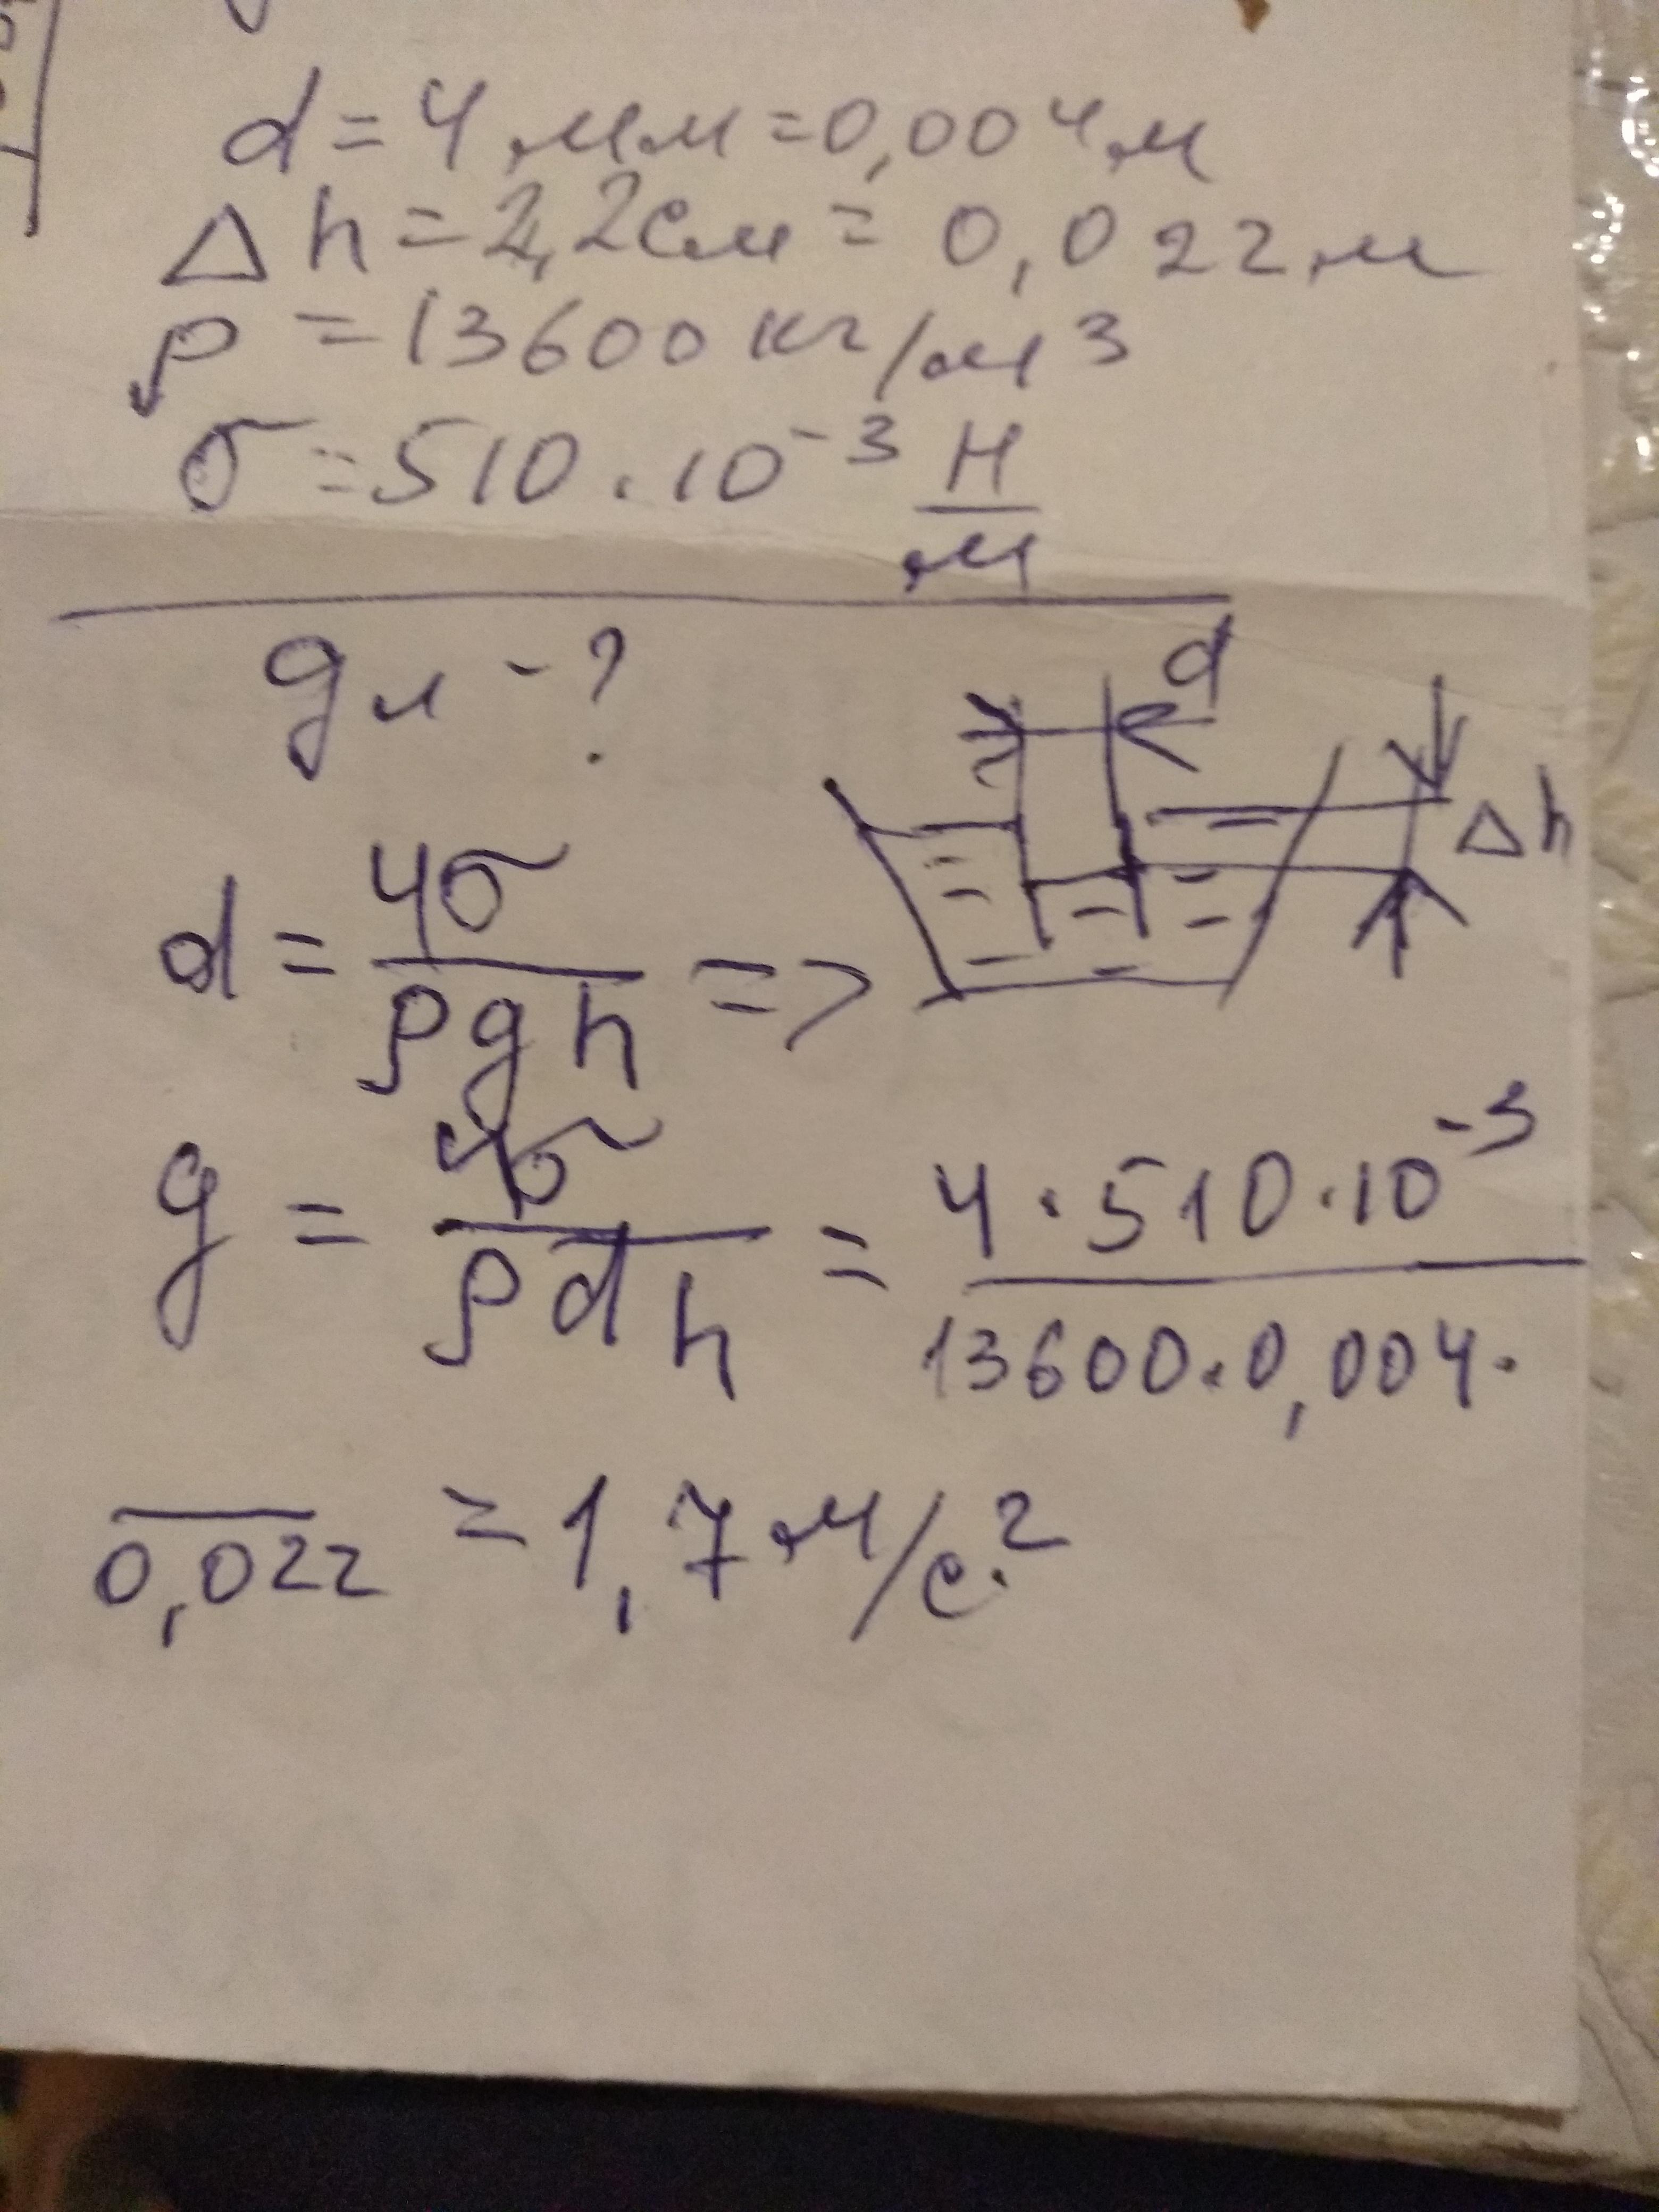 d = 4 мм = 0,004 м
Δh = 2,2 см = 0,022 м
ρ = 13600 кг/м³
σ = 510 · 10⁻³ Н/м
gл - ?
d
Δh
d = 4σ/ρgh =>
g = 4σ/ρdh = 4 · 510 · 10⁻³/13600 · 0,004 ·
0,022 = 1,7 м/с²